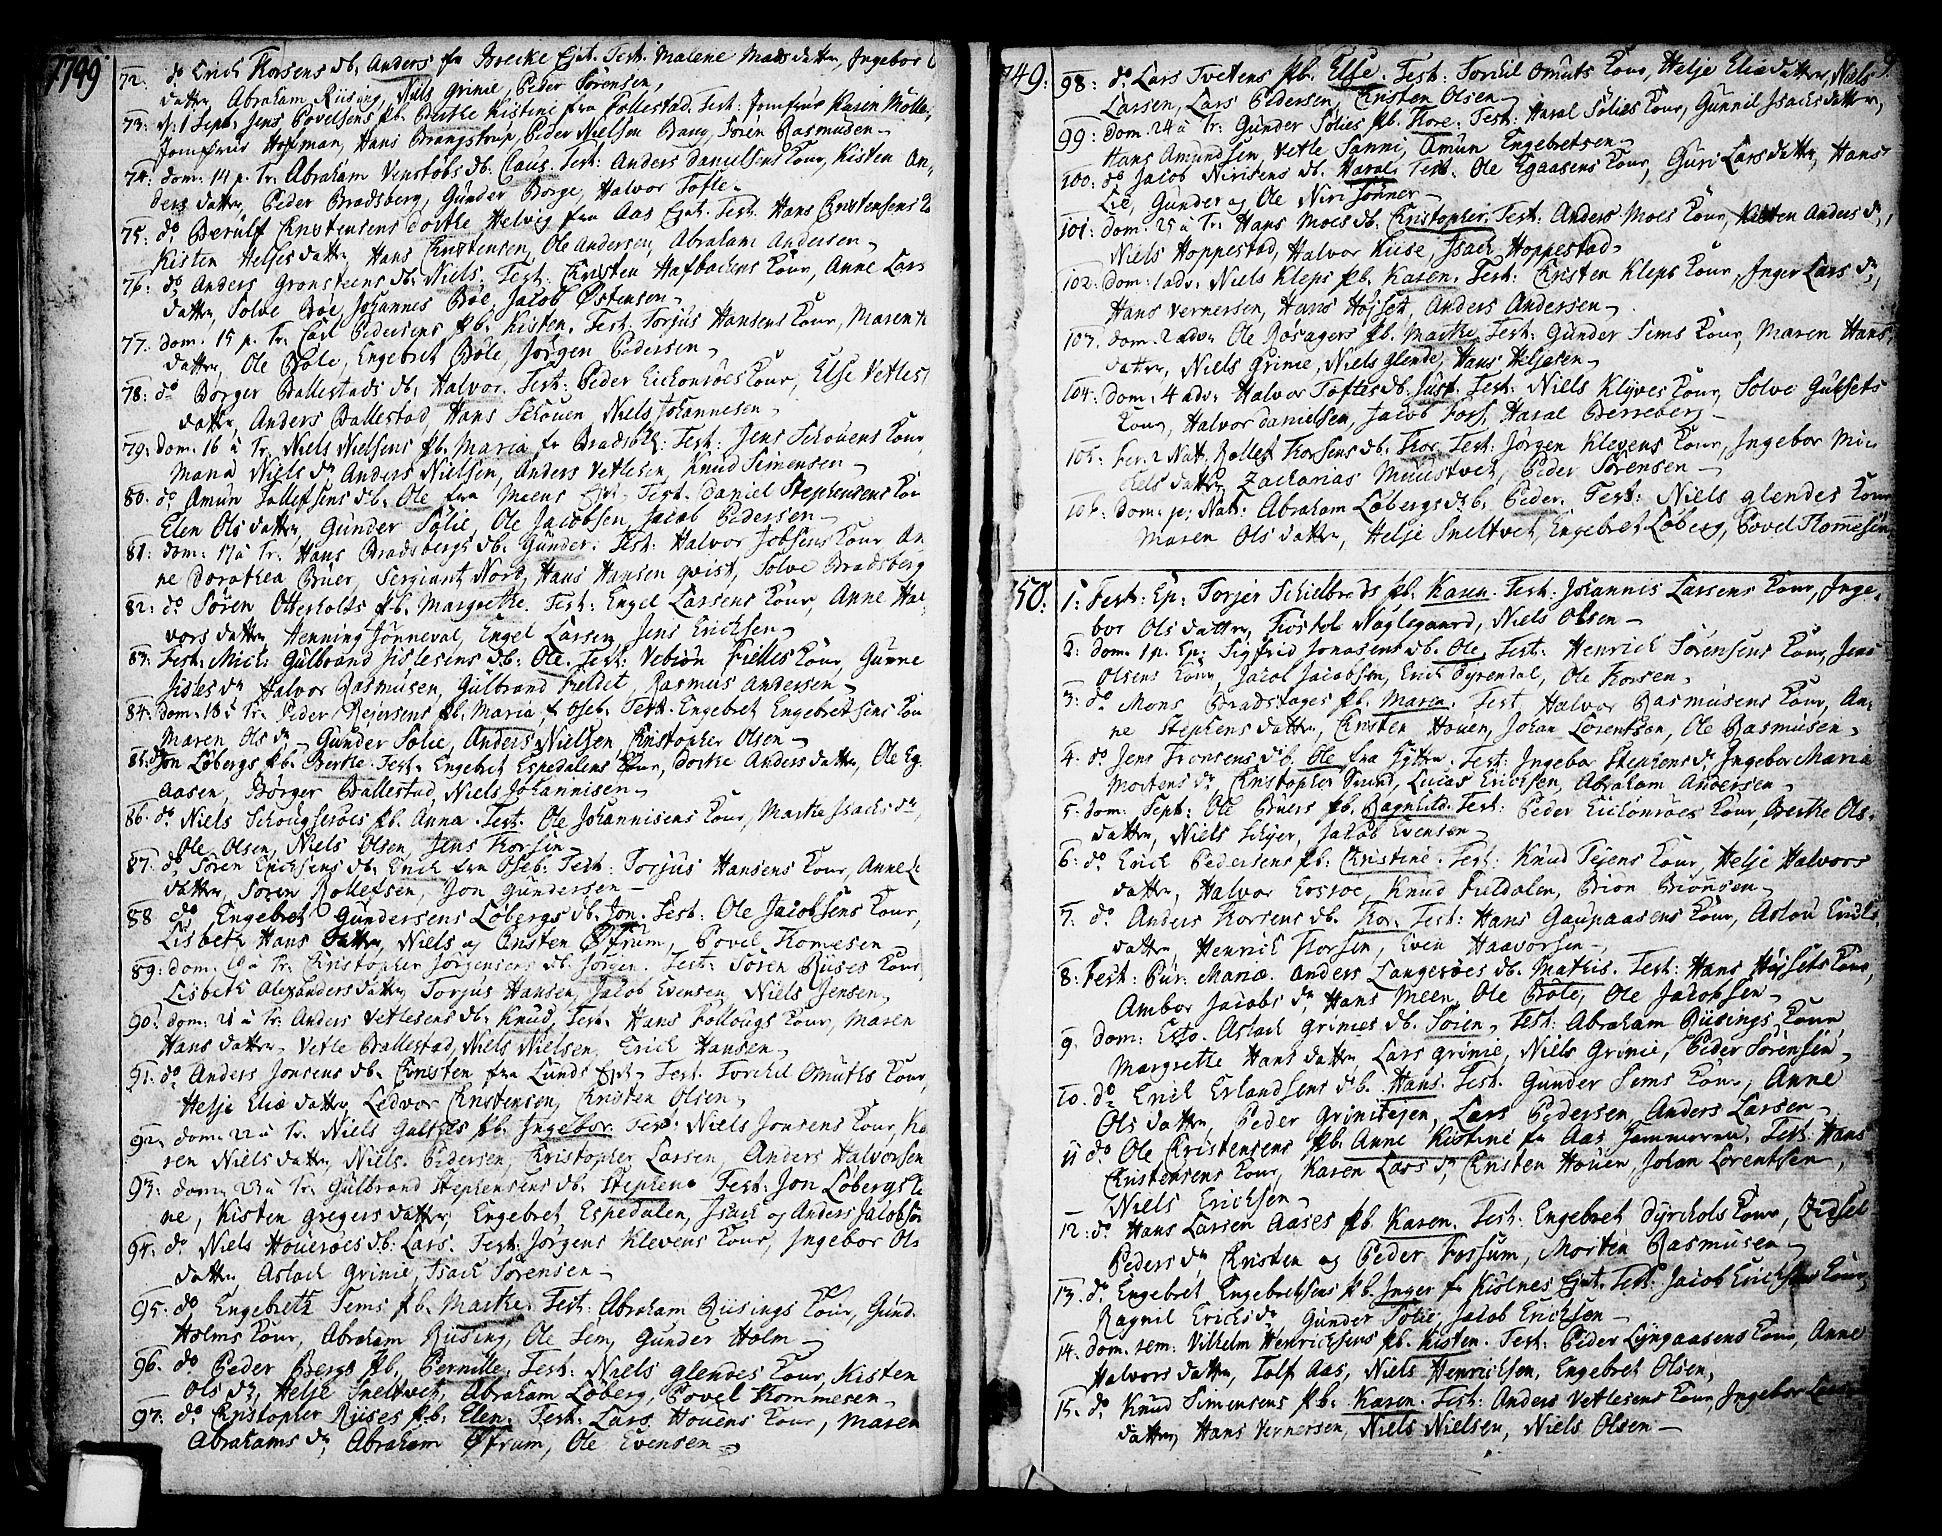 1749
72. do Erich Thorsens db. Anders fra Brecke Ejet. Test. Malene Mats datter, Ingebor
datter, Abraham Riising, Niels Grinie, Peder Sørensen,
73. d. 1 Sept: Jens Povelsens pb. Berthe Kistine fra Follestad. Test: Jomfrue Karen Mølle,
Jomfrue Hofman, Hans Brangstrup, Peder Nielsen Bang, Søren Rasmusen
74. dom. 14 p. Tr. Abraham Venstøbs db. Claus. Test: Anders Danielsens Kone, Kisten An,
ders datter, Peder Bradsberg, Gunder Borge, Halvor Tofte
75. do Berulf Christensens Dorthe Helvig fra Aas Ejet. Test. Hans Christensens
Kisten Heljes datter, Hans Christensen, Ole Andersen, Abraham Andersen
76. do Anders Gronsteens db. Niels. Test: Christen Hafbachens Kone, Anne Lars
datter, Solve Bøe, Johannes Bøe, Jacob Østensen
77. dom. 15 p. Tr. Carl Pedersens pb. Kisten. Test. Torjus Hansens Kone, Maren
datter, Ole Bøle, Engebret Bøle, Jørgen Pedersen
78. do Børger Ballestads db. Halvor. Test: Peder Eichonrøes Kone, Else Vetles
datter, Anders Ballestad, Hans Schouen Niels Johannesen
79. dom. 16 a Tr. Niels Nielsens pb. Maria fr Bradsb: Test: Jens Schouens Kone
Maria Niels dr Anders Nielsen, Anders Vetlesen, Knud Simensen
80. do Amun Tollefsens db. Ole fra Meens Ejet. Test. Daniel Stephensens Kone
Elen Ols datter, Gunder Solie, Ole Jacobsen, Jacob Pedersen
81. dom. 17 a Tr. Hans Bradsbergs db. Gunder. Test: Halvor Jobsens Kone An,
ne Dorothea Bruer, Sergiant Nord, Hans Hansen Qvist, Solve Bradsberg
82. do Søren Otterholts pb. Margrethe. Test: Engel Larsens Kone, Anne Hal,
vors datter Henning Jønneval, Engel Larsen Jens Erichsen
83. Fest: Mich: Gulbrand Jislesens db: Ole. Test: Vebiøn Fieldes Kone, Gunne
Jisles dr Halvor Rasmusen, Gulbrand Fieldet, Rasmus Andersen
84. dom. 18 a Tr. Peder Rejersens pb. Maria f Oseb. Test. Engebret Engebretsens Kone
Maren Ols dr Gunder Solie, Anders Nielsen Christopher Olsen
85. do Jon Løbergs pb. Berthe. Test. Engebret Espedalens Kone, Dorthe Anders datter, Ole Eg,
aasen, Børger Ballestad Niels Johannisen
86. do Niels Schougserøes pb. Anna. Test. Ole Johannisens Kone, Marthe Isachs dr,
Ole Olsen, Niels Olsen, Jens Thorsen
87. do Søren Erichsens db. Erich fra Oseb. Test: Torjus Hansens Kone, Anne L
datter, Søren Tollefsen Jon Gundersen
88 do Engebret Gundersens Løbergs db. Jon. Test: Ole Jacobsens Kone,
Lisbeth Hans datter, Niels og Christen Øfrum, Povel Thomesen
89. dom. 19 a Tr. Christopher Jørgensens db. Jørgen. Test: Søren Riises Kone
Lisbeth Alexanders datter Torjus Hansen, Jacob Evensen Niels Jensen
90. dom: 21 a Tr. Anders Vetlesens db. Knud. Test. Hans Follougs Kone, Maren
Hans datter Vetle Ballestad, Niels Nielsen, Erich Hansen
91. do Anders Jonsens db. Christen fra Lunds Ejet. Test. Torchil Omuths Kone,
Helje Eliæ datter Ledvor Christensen, Christen Olsen
92. dom. 22 a Tr. Niels Galthes pb. Ingebor. Test: Niels Jonsens Kone, Ka
ren Niels datter, Niels Pedersen, Christopher Larsen, Anders Halvorsen
93. dom. 23 a Tr. Gulbrand Stephensens db. Stephen. Test: Jon Løbergs Ko
ne, Kisten Gregers datter Engebret Espedalen, Isach og Anders Jacobsøn
94. do Niels Houerøes db: Lars. Test: Jørgens Klevens Kone, Ingebor Ols
datter, Aslach Grinie, Isach Sørensen
95. do Engebreth Sems pb. Marthe. Test: Abraham Riisings Kone, Gund.
Holms Kone, Abraham Riising, Ole Sem, Gunder Holm
96. do Peder Bergs pb. Pernille. Test: Niels Glendes Kone, Kisten
Ols dr, Helje Sneltvet, Abraham Løberg, Povel Thommesen
97. do Christopher Riises pb. Elen. Test: Lars Houens Kone, Maren
Abrahams dr, Abraham Øfrum, Ole Evensen
749.
98: do Lars Tvetens pb. Else. Test: Torchil Omuts Kone, Helje Eliæ datter, Niels
Larsen, Lars Pedersen, Christen Olsen
99: dom. 24 a Tr: Gunder Solies pb. Thore. Test: Haral Solies Kone, Gunnil Isachs datter,
Hans Amundsen, Vetle Sanni, Amun Engebretsen
100: do Jacob Nirisens db. Haral. Test. Ole Egaasens Kone, Guri Lars datter, Hans
Lie, Gunder og Ole Niri Sønner
101: dom. 25 a Tr: Hans Moes db. Christopher. Test: Anders Moes Kone, Kisten Anders dr,
Niels Hoppestad, Halvor Kiise Isach Hoppestad
102: dom: 1 adv: Niels Kleps pb. Karen. Test: Christen Kleps Kone, Inger Lars dr,
Hans Vernersen, Hans Højset, Anders Andersen
103. dom. 2 adv: Ole Rosagers pb. Marthe. Test: Gunder Sems Kone, Maren Hans
datter, Niels Grinie, Niels Glende, Hans Heljesen
104: dom: 4 adv: Halvor Toftes db. Just. Test: Niels Klyves Kone, Solve Gulsets
Kone, Halvor Danielsen, Jacob Foss, Haral Berreberg
105: fer: 2 Nat. Rollef Thorsens db. Thor. Test: Jørgen Klevens Kone, Ingebor Mic
hels datter Zacharias Mustvet, Peder Sørensen
106. dom: p: Nat: Abraham Løbergs db. Peder. Test: Niels Glendes Kone
Maren Ols datter, Helje Sneltvet, Engebret Løberg, Povel Thomesen
750:
1: Fest: Ep: Torjer Schielbreds pb. Karen. Test: Johannis Larsens Kone, Inge,
bor Ols datter, Thostol Naglegaard, Niels Olsen
2: dom. 1 p. Ep: Sigfrid Jonasens db. Ole. Test: Henrich Sørensens Kone, Jens
Olsens Kone, Jacob Jacobsen, Erich Dyrendal, Ole Thorsen
3: do Mons Bradstages pb. Maren. Test Halvor Rasmusens Kone, An,
ne Stephens datter, Christen Houen, Johan Lorentsen, Ole Rasmusen
4. do Jens Tronsens db. Ole fra Hytten. Test: Ingebor Stephens dr Ingebor Maria
Mortens dr Christopher Svend, Lucas Erichsen, Abraham Andersen
5. dom. Sept: Ole Bruers pb. Ragnild. Test: Peder Eichonrøes Kone, Berthe Ols,
datter, Niels Schjer, Jacob Evensen
6: do Erich Pedersens pb. Christine. Test: Knud Tejens Kone, Helje Halvors
datter, Halvor Fossoe, Knud Fieldalen, Brion Brionsen
7. do Anders Thorsens db. Thor. Test: Hans Gaupaasens Kone, Aslou Erichs
datter, Henrich Thorsen, Even Haavorsen
8: Fest: Pur: Mariæ. Anders Langerøes db. Mathis. Test: Hans Højsets Kone,
Ambor Jacobs dr Hans Meen, Ole Bøle, Ole Jacobsen
9. dom: Esto. Aslach Grinies db. Søren. Test: Abraham Riisings Kone,
Margrethe Hans datter, Lars Grinie, Niels Grinie, Peder Sørensen
10. do Erich Erlandsens db. Hans. Test. Gunder Sems Kone, Anne
Ols datter, Peder Grinitejen, Lars Pedersen Anders Larsen
11 do Ole Christensens pb. Anne Kistine fr Aas Hammeren. Test: Hans
Christensens Kone, Karen Lars dr Christen Houen, Johan Lorentsen,
Niels Erichsen
12: do Hans Larsen Aases pb. Karen. Test: Engebret Dyrchols Kone, Zidsel
Peders dr Christen og Peder Fossum, Morten Rasmusen
13. do Engebret Engebretsens pb. Inger fr Kisenes Ejet. Test: Jacob Erichsens Kone,
Ragnil Erichs dr Gunder Solie Jacob Erichsen
14. dom. sem: Vilhelm Henrichsens pb. Kisten. Test: Peder Lyngaasens Kone, Anne
Halvors datter, Tolf Aas, Niels Henrichsen, Engebret Olsen,
15. do Knud Simensens pb. Karen. Test: Anders Vetlesens Kone, Ingebor Lars
datter, Hans Vernersen, Niels Nielsen, Niels Olsen